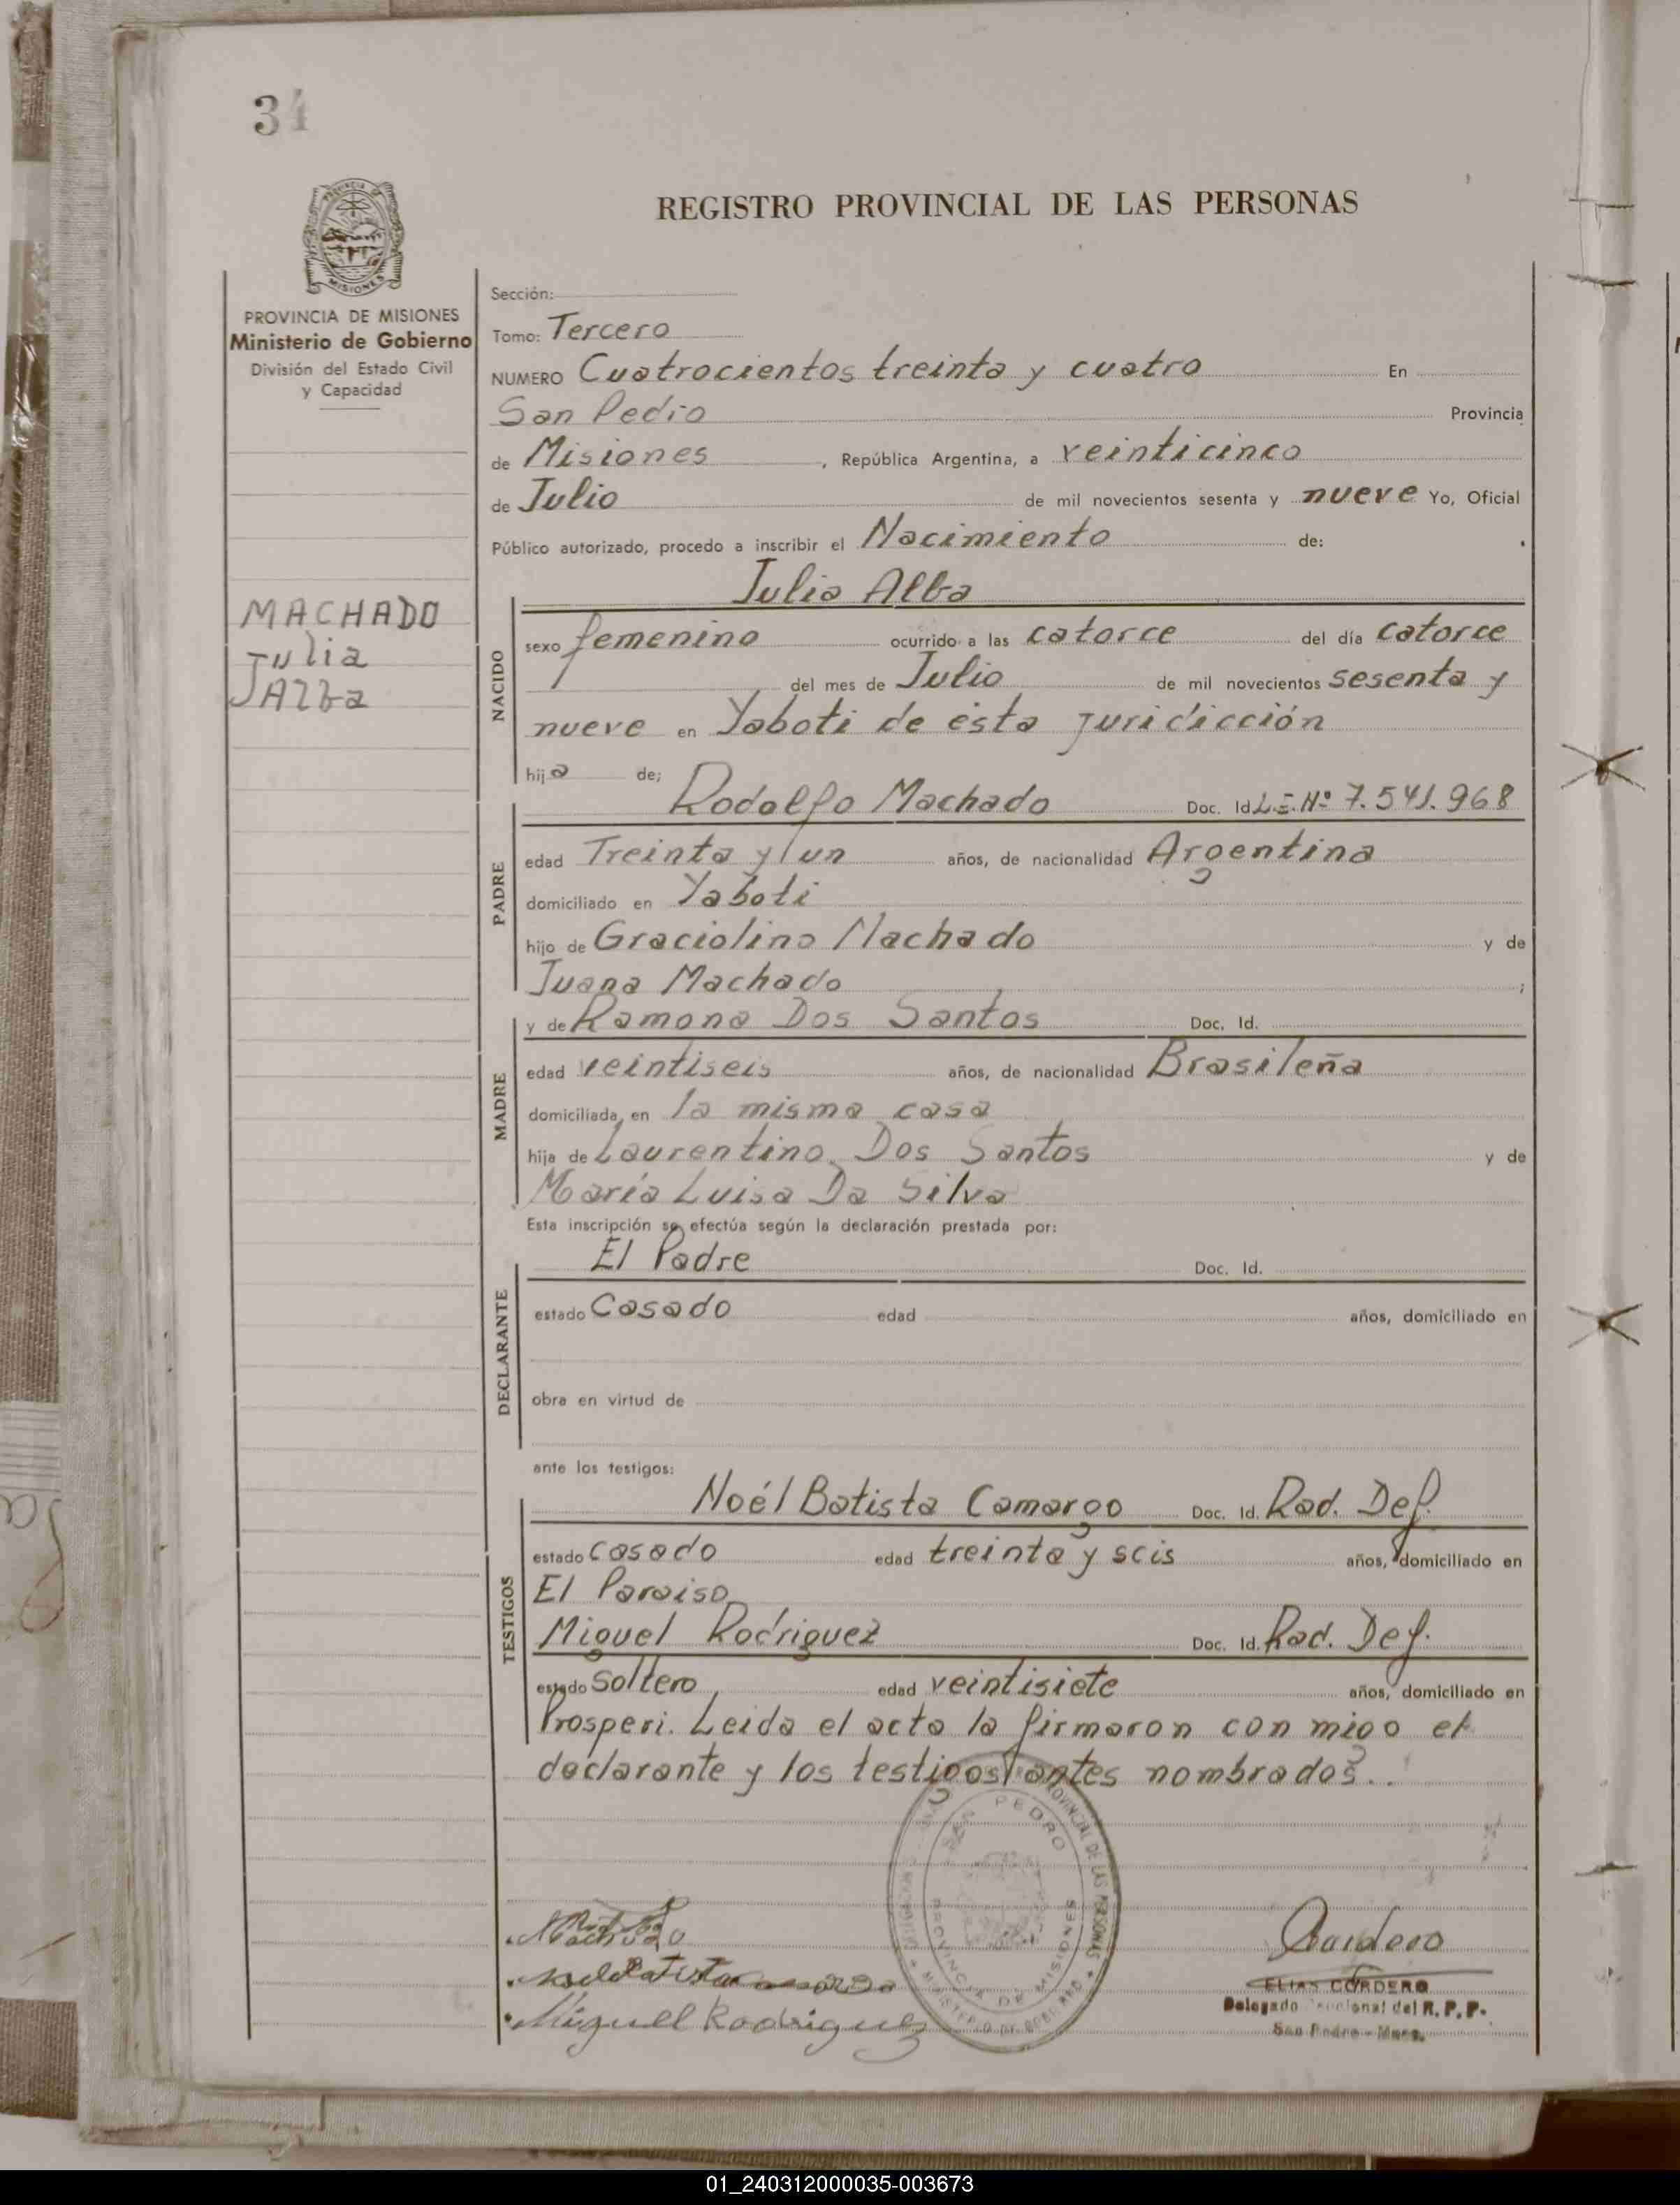 34
REGISTRO PROVINCIAL DE LAS PERSONAS
PROVINCIA DE MISIONES
Ministerio de Gobierno
División del Estado Civil
y Capacidad
MACHADO
Julia
Alba
Sección:
Tomo: Tercero
NUMERO Cuatrocientos treinta y cuatro En
San Pedro Provincia
de Misiones, República Argentina, a veinticinco
de Julio de mil novecientos sesenta y nueve Yo, Oficial
Público autorizado, procedo a inscribir el Nacimiento de:
NACIDO
Julia Alba
sexo femenino ocurrido a las catorce del día catorce
del mes de Julio de mil novecientos sesenta y
nueve en Yaboti de ésta juridicción
hija de;
PADRE
Rodolfo Machado Doc. Id. L.E. Nº 7.541.968
edad Treinta y un años, de nacionalidad Argentina
domiciliado en Yaboti
hijo de Graciolino Machado y de
Juana Machado ;
MADRE
y de Ramona Dos Santos Doc. Id.
edad veintiseis años, de nacionalidad Brasileña
domiciliada en la misma casa
hija de Laurentino Dos Santos y de
María Luisa Da Silva
Esta inscripción se efectúa según la declaración prestada por:
DECLARANTE
El Padre Doc. Id.
estado Casado edad años, domiciliado en
obra en virtud de
ante los testigos:
TESTIGOS
Noél Batista Camargo Doc. Id. Rad. Def.
estado casado edad treinta y seis años, domiciliado en
El Paraiso
Miguel Rodriguez Doc. Id. Rad. Def.
estado soltero edad veintisiete años, domiciliado en
Prosperi. Leida el acta la firmaron con migo el
declarante y los testigos antes nombrados..
SAN PEDRO
PROVINCIAL DE LAS PERSONAS
PROVINCIA DE MISIONES
MINISTERIO DE GOBIERNO
Machado
Miguell Rodriguez
Cordero
ELIAS CORDERO
Delegado Seccional del R.P.P.
San Pedro - Mnes.
01_240312000035-003673